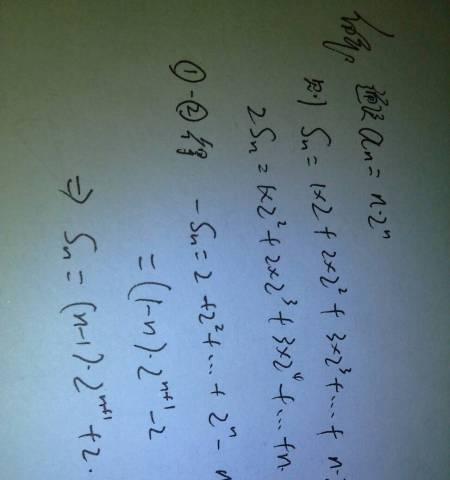 解: 通项 an = n·2ⁿ
则 Sn = 1×2 + 2×2² + 3×2³ + ... + n·
2Sn = 1×2² + 2×2³ + 3×2⁴ + ... + n·
①-②得 -Sn = 2 + 2² + ... + 2ⁿ - n
= (1-n)·2ⁿ⁺¹ - 2
⇒ Sn = (n-1)·2ⁿ⁺¹ + 2.